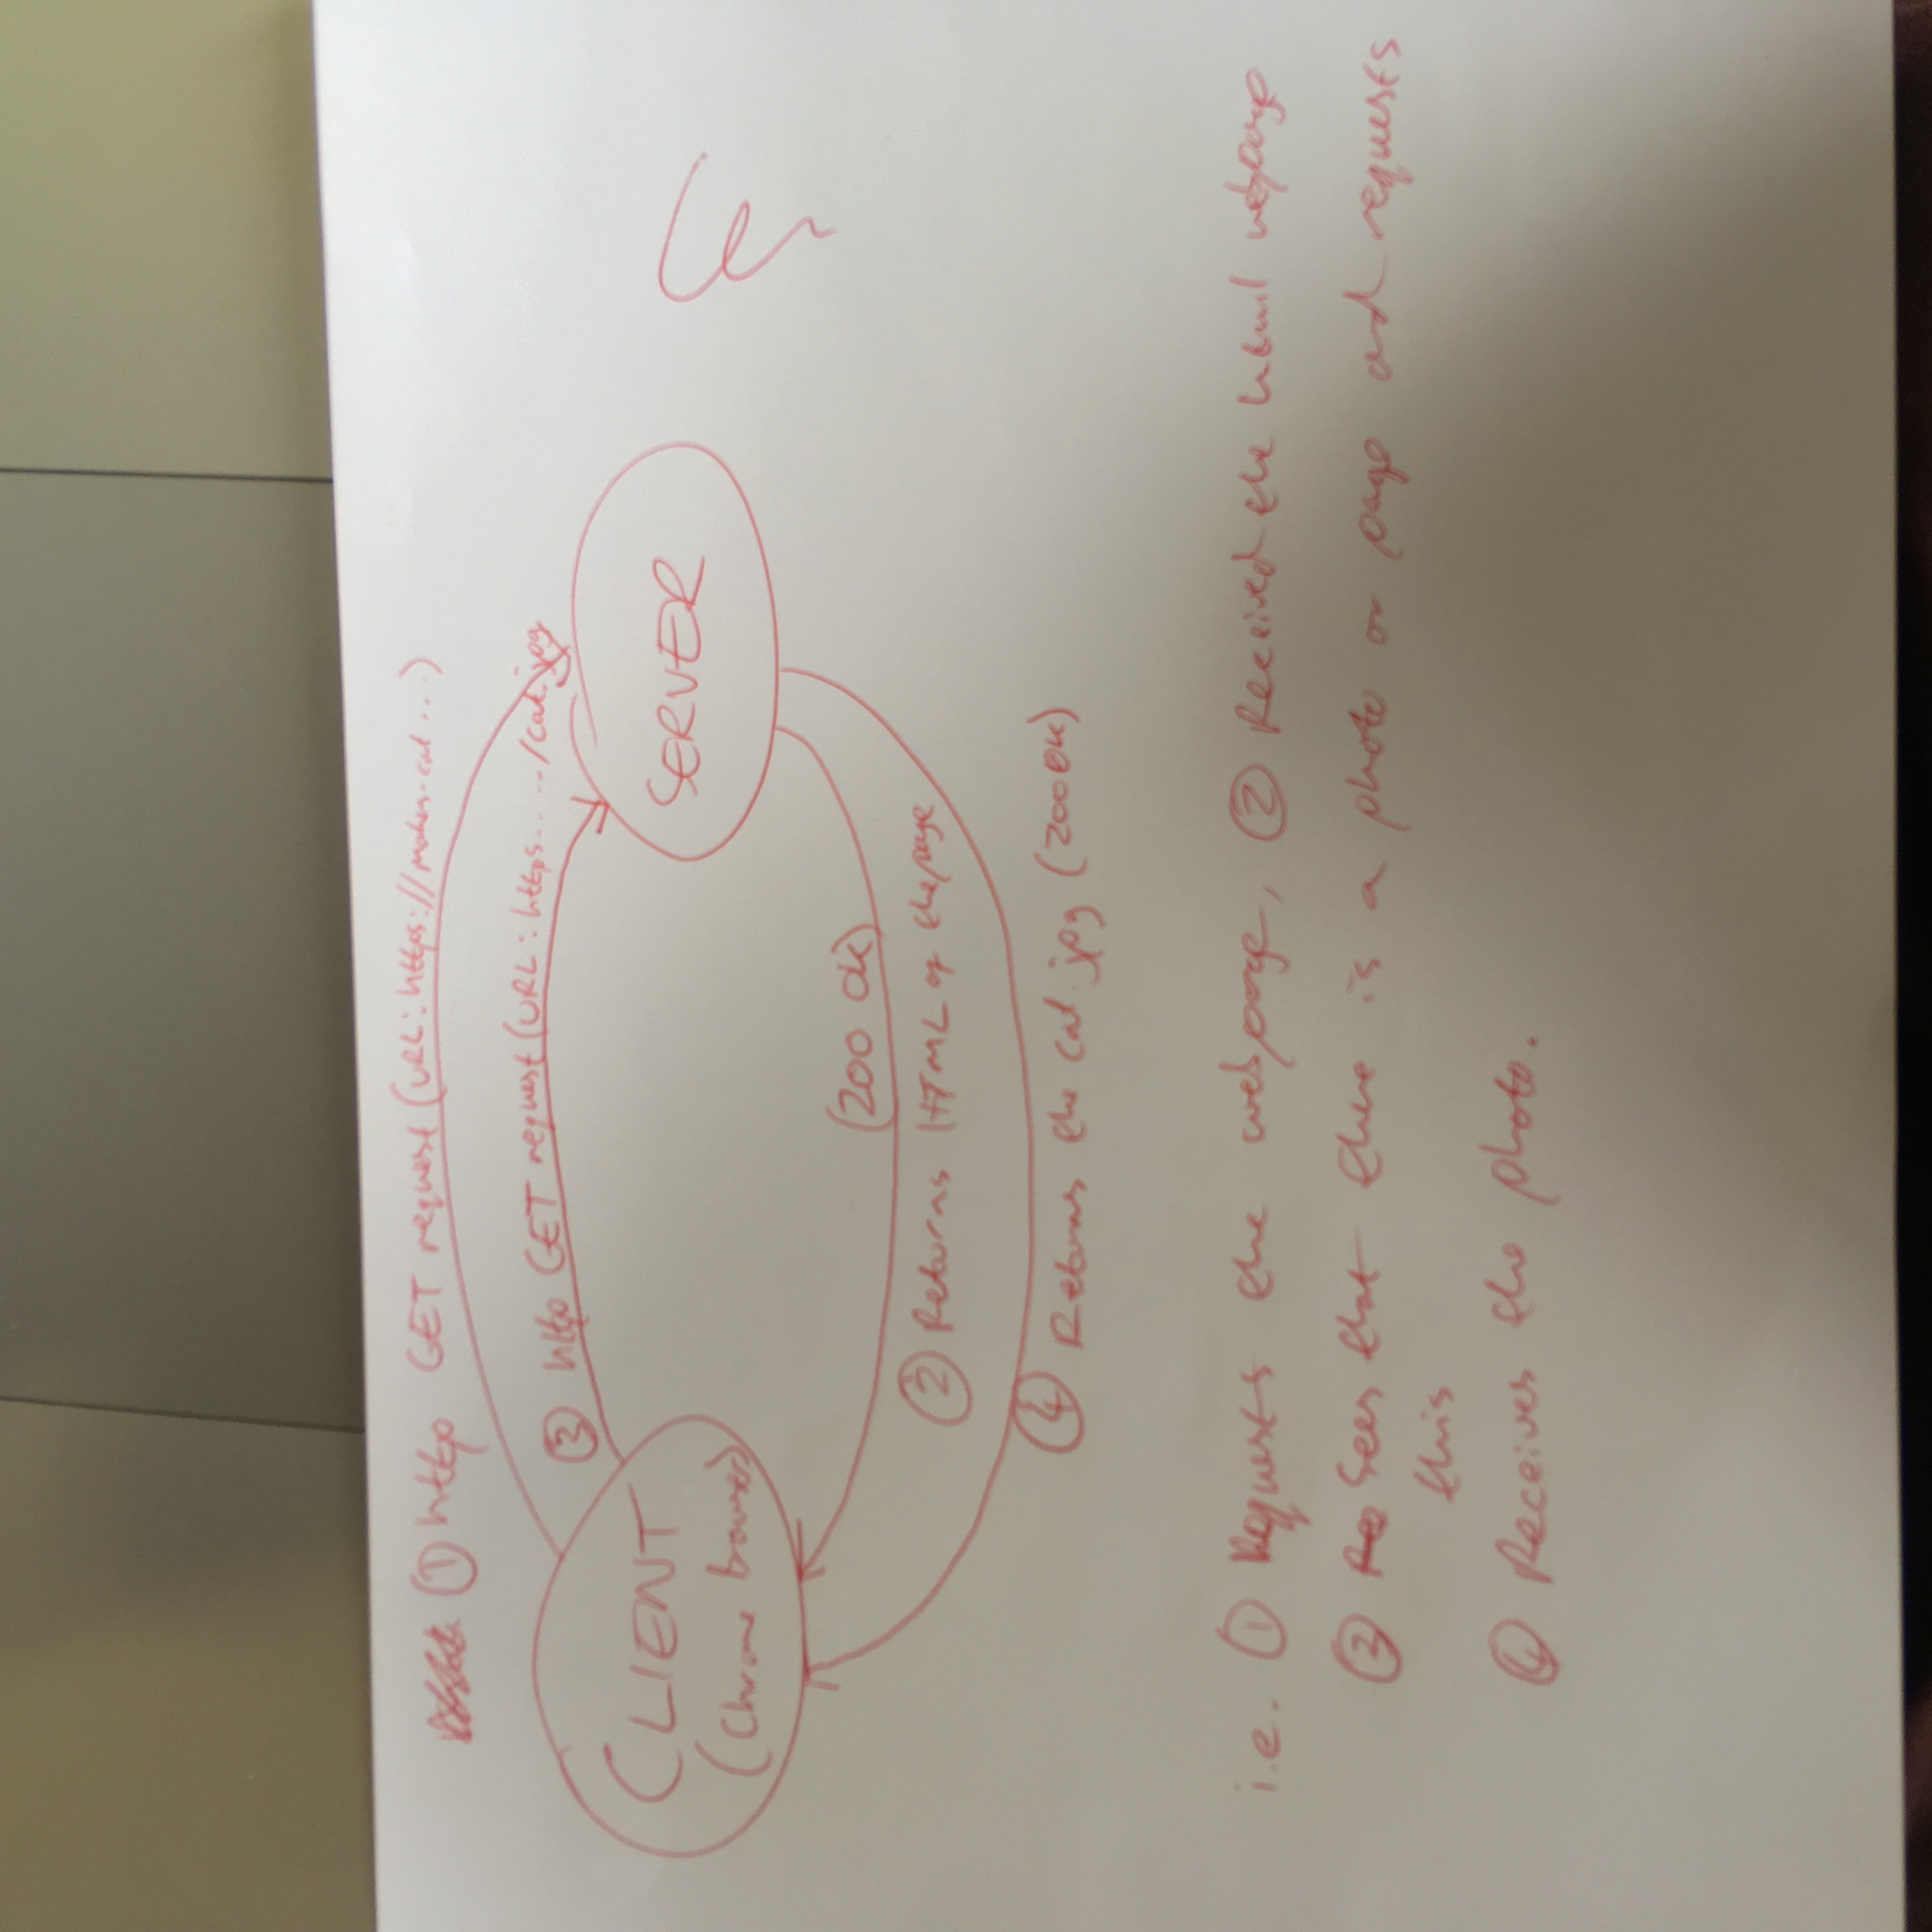 ① http GET request (URL: https://mohns-cat ...)
③ http GET request (URL: https.. ../cat.jpg
CLIENT
(Chrome browser)
SERVER
(200 OK)
② Returns HTML of the page
④ Returns the cat.jpg (200 OK)
i.e. ① Requests the webpage, ② Received the html webpage
③ Sees that there is a photo on page and requests
this
④ Receives the photo.